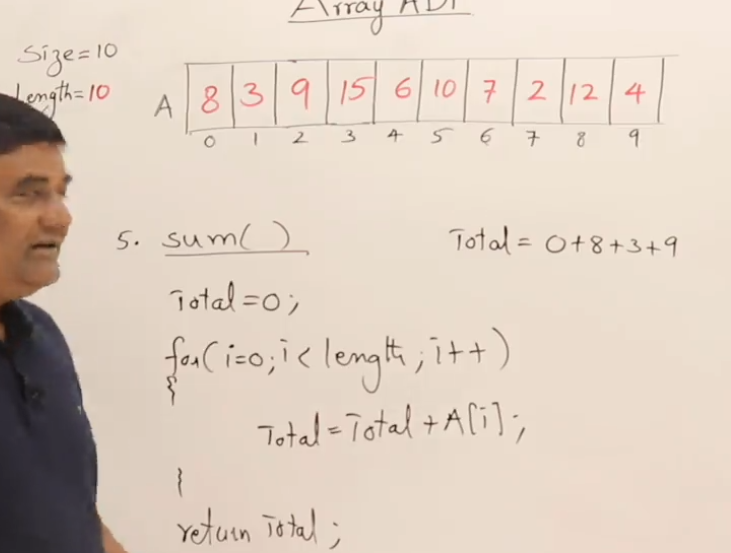 Array ADT
Size=10
Length=10
A 8 3 9 15 6 10 7 2 12 4
0 1 2 3 4 5 6 7 8 9
5. sum( ) Total = 0+8+3+9
Total=0;
for(i=0;i<length;i++)
{
Total=Total+A[i];
}
return Total;